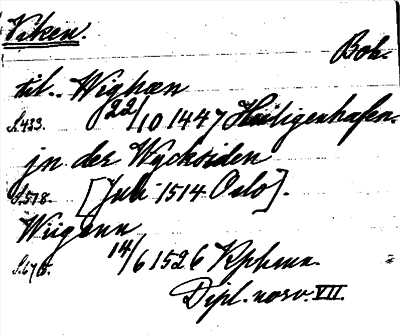 Viken.
Boh.
til.. Wighæn
S.433. 22/10 1447 Heiligenhafen.
jn der Wycksiden
S.518. [Juli 1514 Oslo].
Wiigenn
S.675. 14/6 1526 Kphmn.
Dipl. norv. VII.